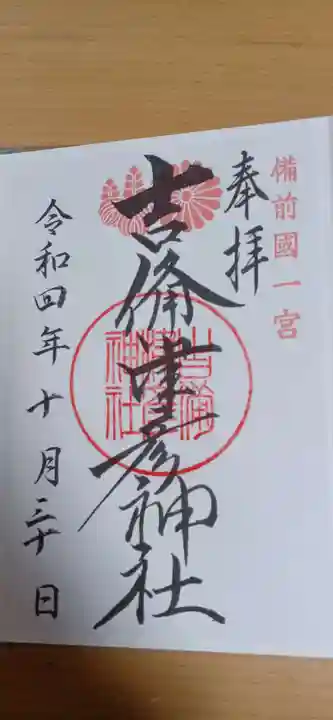 備前國一宮
奉拝
吉備津彦神社
吉備津彦神社
令和四年十月三十日